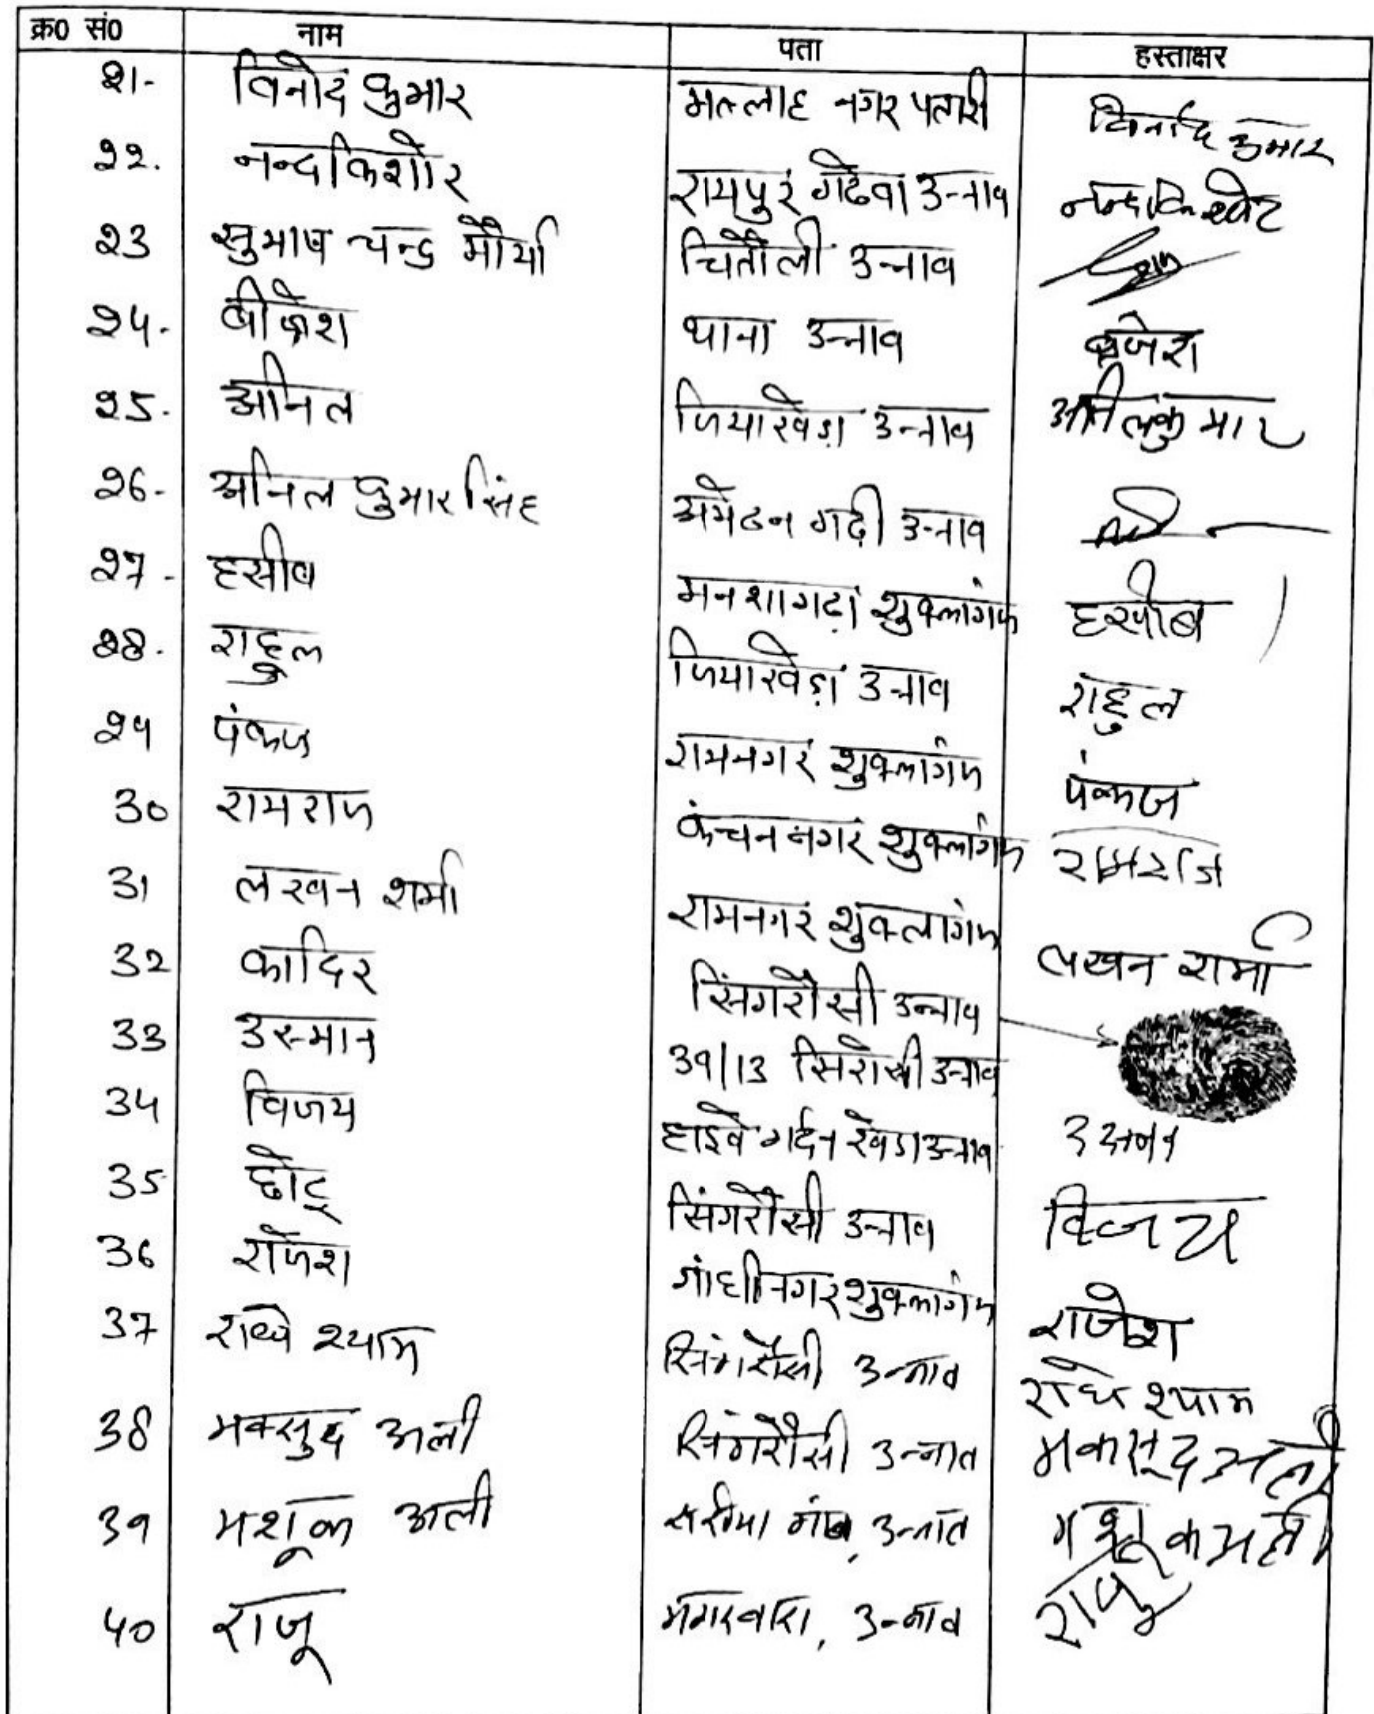 क्र0 सं0 नाम पता हस्ताक्षर
21- विनोद कुमार मल्लाह नगर पतारी विनोद कुमार
22. नन्दकिशोर रामपुर गढेवा उन्नाव नन्दकिशोर
23 सुभाष चन्द्र मौर्या चितौली उन्नाव
24- बीजेश थाना उन्नाव ब्रजेश
25- अनिल जियाखेड़ा उन्नाव अनिल कुमार
26- अनिल कुमार सिंह गढ़ी उन्नाव
27- हसीब शुक्लागंज हसीब
28- राहुल जियाखेड़ा उन्नाव राहुल
29 पंकज रामनगर शुक्लागंज पंकज
30 रामराज कंचन नगर शुक्लागंज रामराज
31 लखन शर्मा रामनगर शुक्लागंज लखन शर्मा
32 कादिर सिंगरौसी उन्नाव
33 उस्मान 39/13 उन्नाव
34 विजय हाइवे उन्नाव विजय
35 छोटू सिंगरौसी उन्नाव
36 राजेश गांधीनगर शुक्लागंज राजेश
37 राधे श्याम सिंगरौसी उन्नाव राधे श्याम
38 मक्सुद अली सिंगरौसी उन्नाव मकसूद अली
39 मशूक अली उन्नाव मशूक अली
40 राजू मगरवारा, उन्नाव राजू